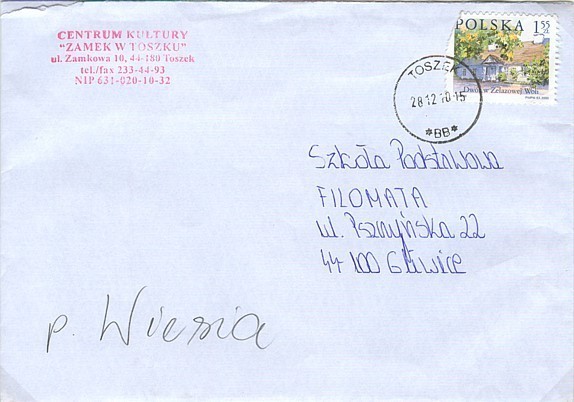 CENTRUM KULTURY
"ZAMEK W TOSZKU"
ul. Zamkowa 10, 44-180 Toszek
tel./fax 233-44-93
NIP 631-020-10-32
POLSKA 155
zł
Dwór w Żelazowej Woli
TOSZEK
28.12.10-15
*BB*
Szkoła Podstawowa
FILOMATA
ul. Pszczyńska 22
44 100 Gliwice
p. Wiesia